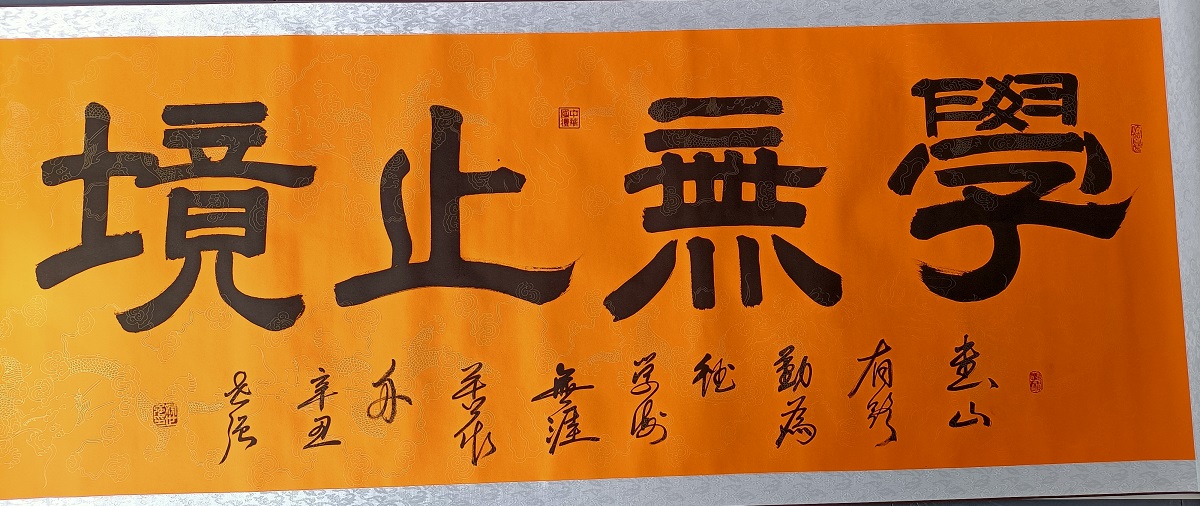 學無止境
書山
有路
勤為
徑
学海
無涯
苦作
舟
辛丑